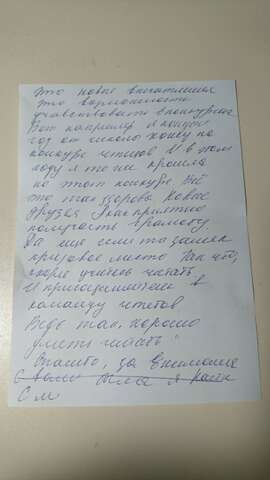 Это новые впечатления
это возможность
учавствовать в конкурсах
Вот например я каждый
год от школы хожу на
конкурс чтецов И в этом
году я то же прошла
на этот конкурс. Всё
это так здорово Новые
друзья. Так приятно
получать грамоту
Да еще если то занял
призовое место. Так что,
скорее учитесь читать
И присоединяйтесь в
команду чтецов
Ведь так, хорошо
уметь читать!
Спасибо, за внимание
С вами была я Катя
С м